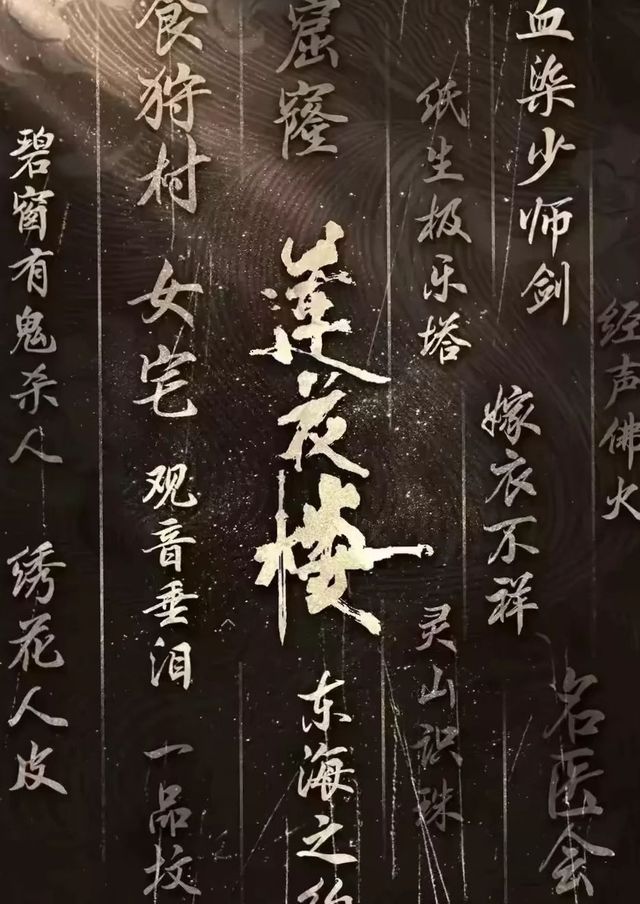 经声佛火
血染少师剑
名医会
嫁衣不祥
纸生极乐塔
灵山识珠
窟窿
莲花楼
东海之约
食狩村
女宅
观音垂泪
一品坟
碧窗有鬼杀人
绣花人皮